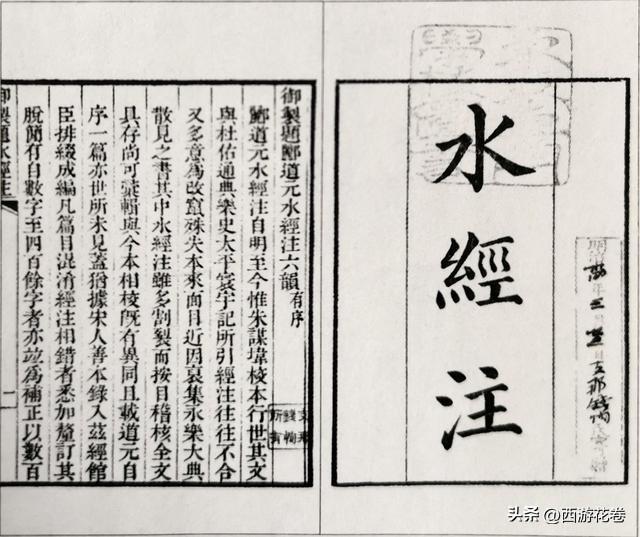 水經注
御製題酈道元水經注六韻 有序
酈道元水經注自明至今惟朱謀㙔校本行世其文
與杜佑通典樂史太平寰宇記所引經注往往不合
又多意為改竄殊失本來面目近因裒集永樂大典
散見之書其中水經注雖多割裂而按目稽核全文
具存尚可彚輯與今本相校旣有異同且載道元自
序一篇亦世所未見蓋猶據宋人善本錄入茲經館
臣排綴成編凡篇目混淆經注相錯者悉加釐訂其
脫簡有自數字至四百餘字者亦竝為補正以數百
御製題水經注
二
头条 @西游花卷